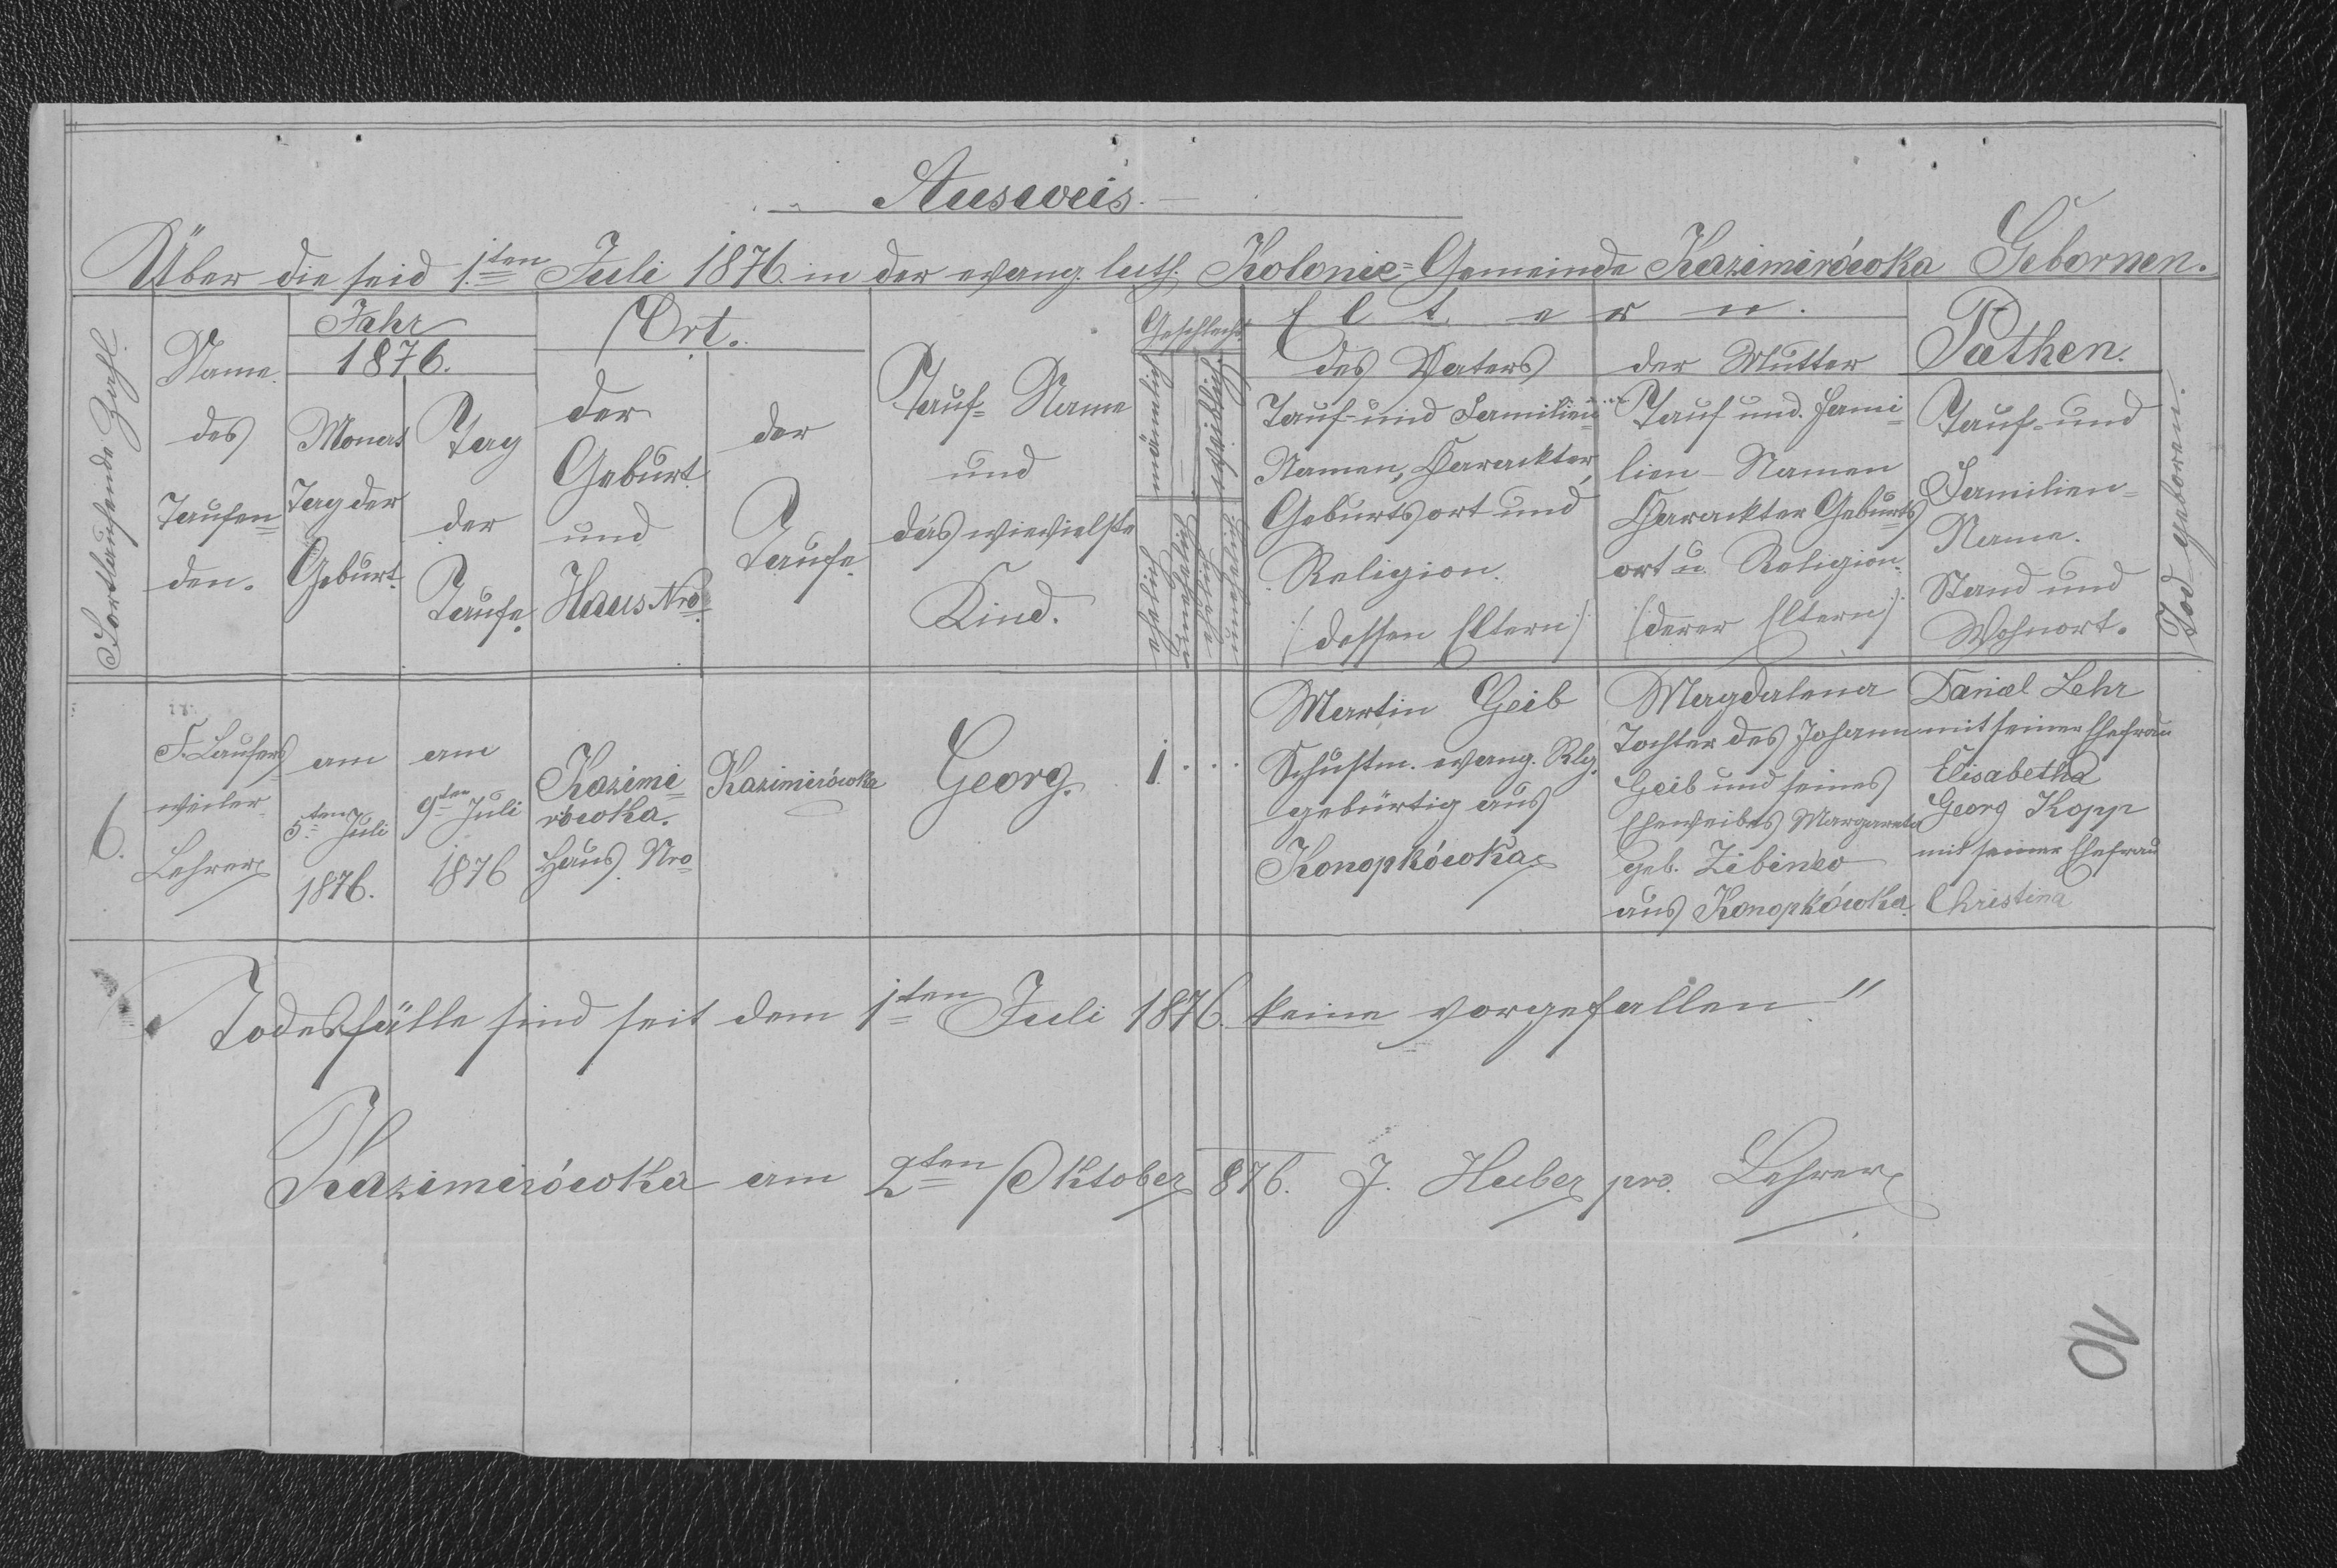 Ausweis.
Über die seid 1.ten Juli 1876. in der evang. luth. Kolonie=Gemeinde Kazimirówka Gebornen.
Fortlaufende Zahl.
Name
des
Taufen=
den.
Jahr
1876.
Monat
Tag der
Geburt.
Tag
der
Taufe.
Ort.
der
Geburt
und
Haus Nro.
der
Taufe.
Tauf= Name
und
das wievielste
Kind.
Geschlecht
männlich
weiblich
ehelich
unehelich
ehelich
unehelich
Eltern.
des Vaters
Tauf- und Familien=
Namen, Charackter,
Geburtsort und
Religion.
/: dessen Eltern :/
der Mutter
Tauf und. Fami=
lien-Namen
Charackter Geburts
ort u. Religion.
/: derer Eltern :/
Pathen.
Tauf- und
Familien=
Name.
Stand und
Wohnort.
Tod geboren.
6.
F. Laufers
weiler
Lehrer
am
5.ten Juli
1876.
am
9ten Juli
1876
Kazimi=
rówka.
Haus. Nro
Kazimirówka
Georg.
1. . . .
Martin Geib
Schustm. evang. Rlg.
gebürtig aus
Konopkówka
Magdalena
Tochter des Johann
Geib und seines
Eheweibes Margareta
geb.
aus Konopkówka.
Daniel Lehr
mit seiner Ehefrau
Elisabetha
Georg Kopp
mit seiner Ehefrau
Christina
Todesfälle sind seit dem 1ten Juli 1876. keine vorgefallen."
Kazimirówka am 2ten Oktober 876. J. Huber pro. Lehrer
10